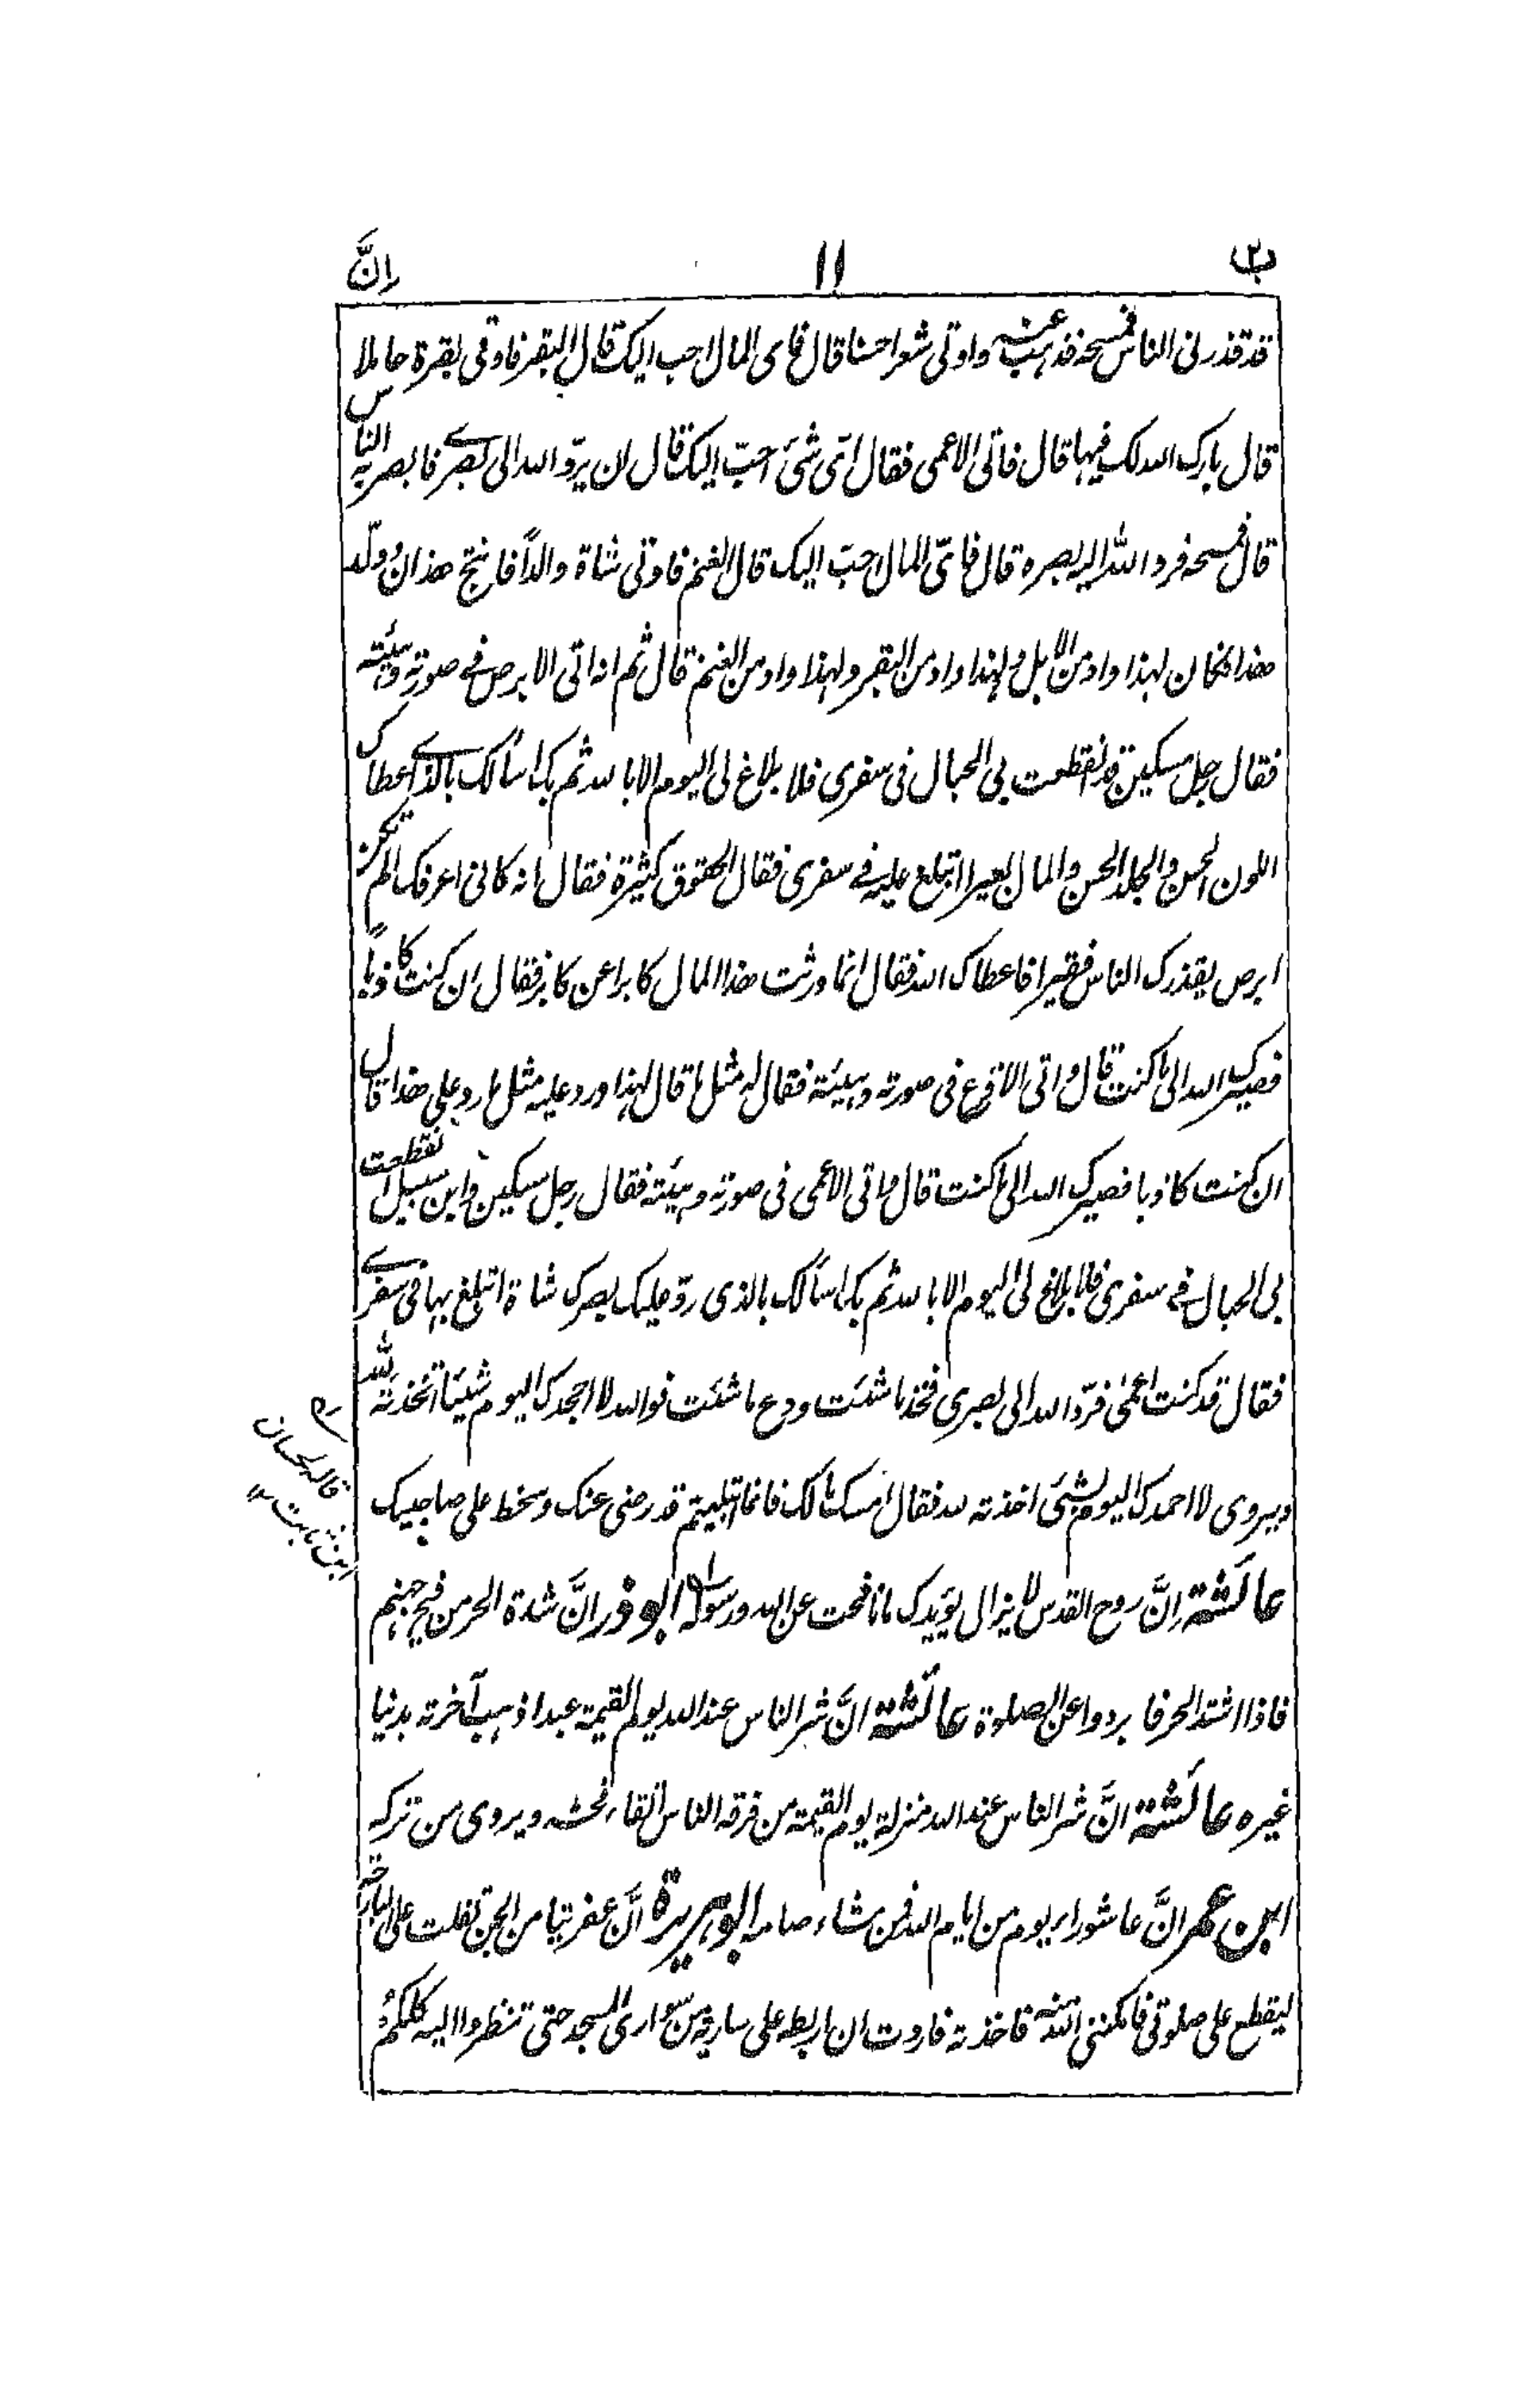 ب٢ ١١ إنَّ
قد قذرنی الناس فمسحه فذهب عنه واوتی شعرا حسنا قال فای المال احب الیک قال البقر فاوتی بقرة حاملا
قال بارک الله لک فیها قال فاتی الاعمی فقال ایّ شئ احبّ الیک قال ان یردّ الله الی بصری فابصر به الناس
قال فمسحه فرد الله الیه بصره قال فایّ المال احبّ الیک قال الغنم فاوتی شاة والداً فانتج هذان وولّد
هذا فکان لهذا واد من الابل ولهذا واد من البقر ولهذا واد من الغنم قال ثم انه اتی الابرص فی صورته وهیئته
فقال رجل مسکین قد انقطعت بی الحبال فی سفری فلا بلاغ لی الیوم الا بالله ثم بک اسألک بالذی اعطاک
اللون الحسن والجلد الحسن والمال بعیرا اتبلغ علیه فی سفری فقال الحقوق کثیرة فقال انه کانی اعرفک الم تکن
ابرص یقذرک الناس فقیرا فاعطاک الله فقال انما ورثت هذا المال کابرا عن کابر فقال ان کنت کاذباً
فصیرک الله الی ما کنت قال واتی الاقرع فی صورته وهیئته فقال له مثل ما قال لهذا ورد علیه مثل ما رد علی هذا قال
ان کنت کاذبا فصیرک الله الی ما کنت قال واتی الاعمی فی صورته وهیئته فقال رجل مسکین وابن سبیل انقطعت
بی الحبال فی سفری فلا بلاغ لی الیوم الا بالله ثم بک اسألک بالذی ردّ علیک بصرک شاة اتبلغ بها فی سفری
فقال قد کنت اعمیٰ فردّ الله الی بصری فخذ ما شئت ودع ما شئت فوالله لا اجهدک الیوم شیئا اتخذته لله
ویروی لا احمدک الیوم بشئ اخذته لله فقال امسک مالک فانما ابتلیتم قد رضی عنک وسخط علی صاحبیک
عائشة إنَّ روح القدس لا یزال یؤیدک ما نافحت عن الله ورسوله ابو ذر انَّ شدة الحر من فیح جهنم
فاذا اشتد الحر فابردوا عن الصلوة عائشة انَّ شر الناس عند الله یوم القیمة عبدا ذهب آخرته بدنیا
غیره عائشة انَّ شر الناس عند الله منزلة یوم القیمة من فرقه الناس اتقاء فحشه ویروی من ترکه
ابن عمر انَّ عاشوراء یوم من ایام الله فمن شاء صامه ابوهریرة انَّ عفریتا من الجن تفلت علی البارحة
لیقطع علی صلوتی فامکننی الله منه فاخذته فاردت ان اربطه علی ساریة من سواری المسجد حتی تنظروا الیه کلکم
قاله لحسان
ابن ثابت ١٢